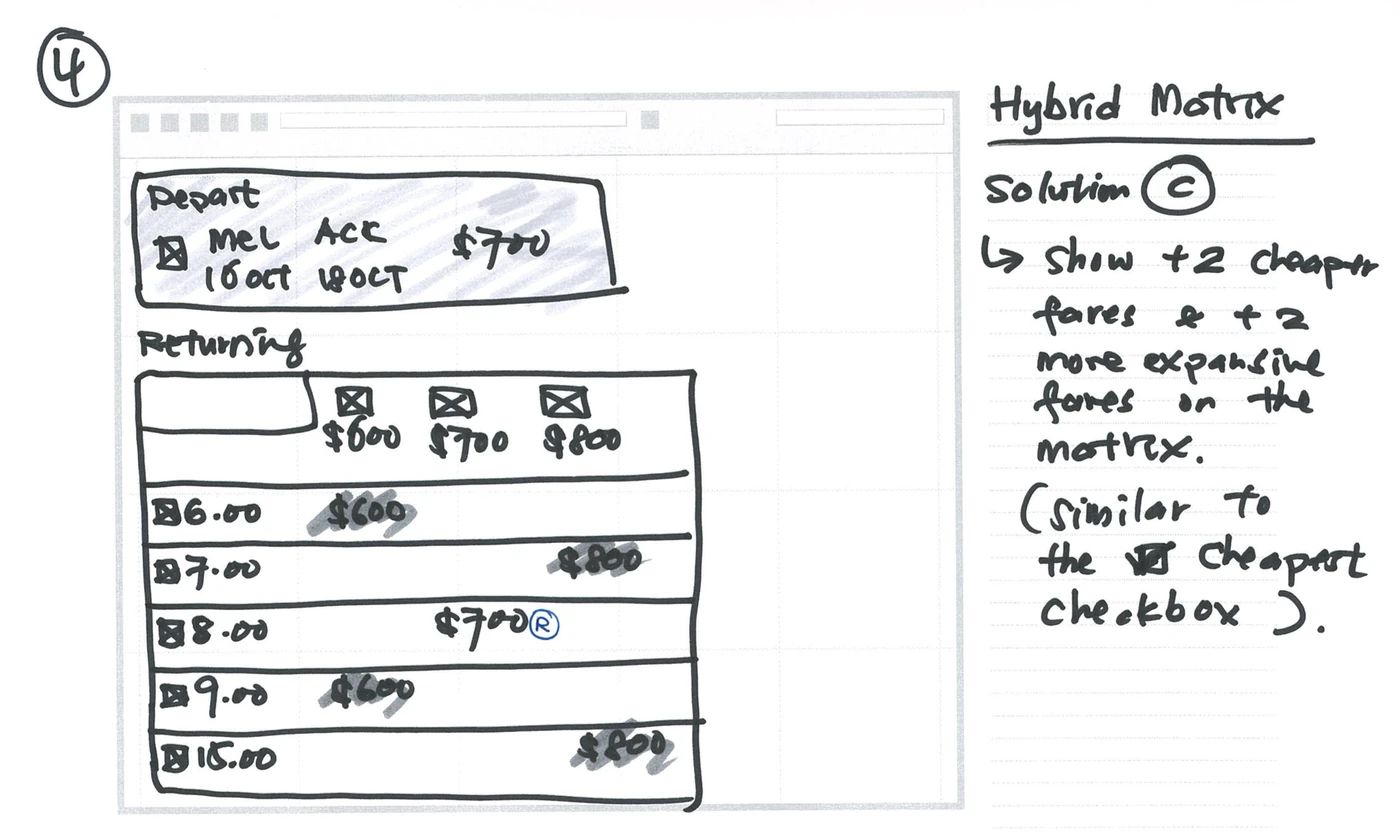 4
Hybrid Matrix
Solution C
↳ show +2 cheaper
fares & +2
more expansive
fares on the
matrix.
(similar to
the ☑ cheapest
checkbox).
Depart
Mel ACK $700
16 oct 18 OCT
Returning
$600 $700 $800
6.00 $600
7.00 $800
8.00 $700 R
9.00 $600
15.00 $800